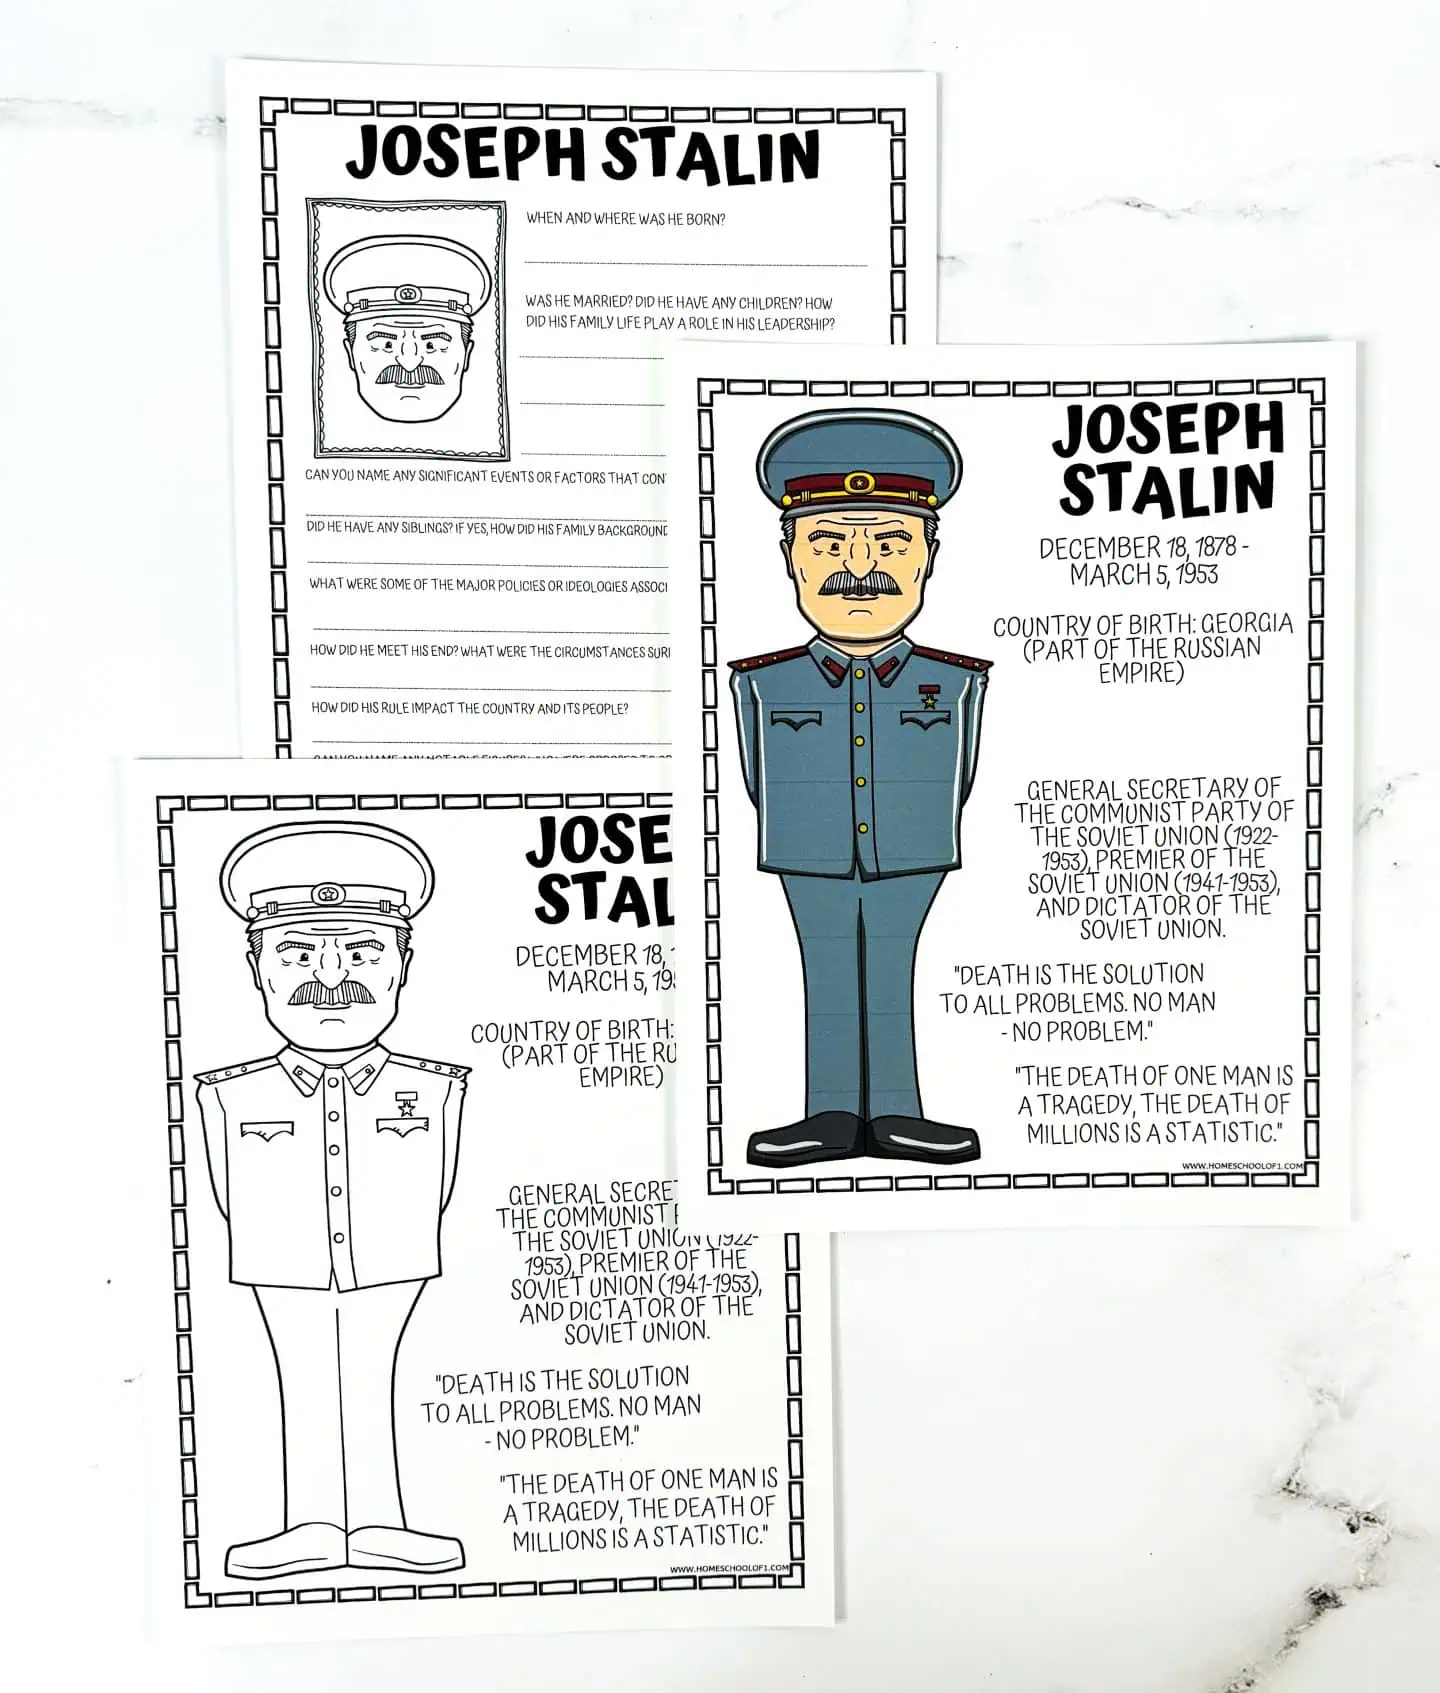 JOSEPH STALIN
WHEN AND WHERE WAS HE BORN?
WAS HE MARRIED? DID HE HAVE ANY CHILDREN? HOW
DID HIS FAMILY LIFE PLAY A ROLE IN HIS LEADERSHIP?
CAN YOU NAME ANY SIGNIFICANT EVENTS OR FACTORS THAT
DID HE HAVE ANY SIBLINGS? IF YES, HOW DID HIS FAMILY BACKGROUND
WHAT WERE SOME OF THE MAJOR POLICIES OR IDEOLOGIES
HOW DID HE MEET HIS END? WHAT WERE THE CIRCUMSTANCES
HOW DID HIS RULE IMPACT THE COUNTRY AND ITS PEOPLE?
JOSEPH
STALIN
DECEMBER 18, 1878 -
MARCH 5, 1953
COUNTRY OF BIRTH: GEORGIA
(PART OF THE RUSSIAN
EMPIRE)
GENERAL SECRETARY OF
THE COMMUNIST PARTY OF
THE SOVIET UNION (1922-
1953), PREMIER OF THE
SOVIET UNION (1941-1953),
AND DICTATOR OF THE
SOVIET UNION.
"DEATH IS THE SOLUTION
TO ALL PROBLEMS. NO MAN
- NO PROBLEM."
"THE DEATH OF ONE MAN IS
A TRAGEDY, THE DEATH OF
MILLIONS IS A STATISTIC."
WWW.HOMESCHOOLOF1.COM
JOSE
STAL
DECEMBER 18,
MARCH 5, 195
COUNTRY OF BIRTH:
(PART OF THE RU
EMPIRE)
GENERAL SECRE
THE COMMUNIST
THE SOVIET UNION (1922-
1953), PREMIER OF THE
SOVIET UNION (1941-1953),
AND DICTATOR OF THE
SOVIET UNION.
"DEATH IS THE SOLUTION
TO ALL PROBLEMS. NO MAN
- NO PROBLEM."
"THE DEATH OF ONE MAN IS
A TRAGEDY, THE DEATH OF
MILLIONS IS A STATISTIC."
WWW.HOMESCHOOLOF1.COM